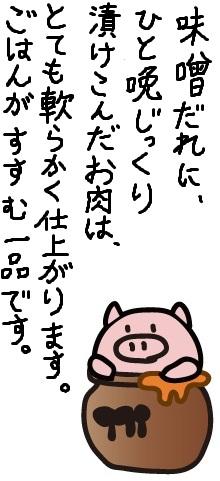 味噌だれに、
ひと晩じっくり
漬けこんだお肉は、
とても軟らかく仕上がります。
ごはんがすすむ一品です。